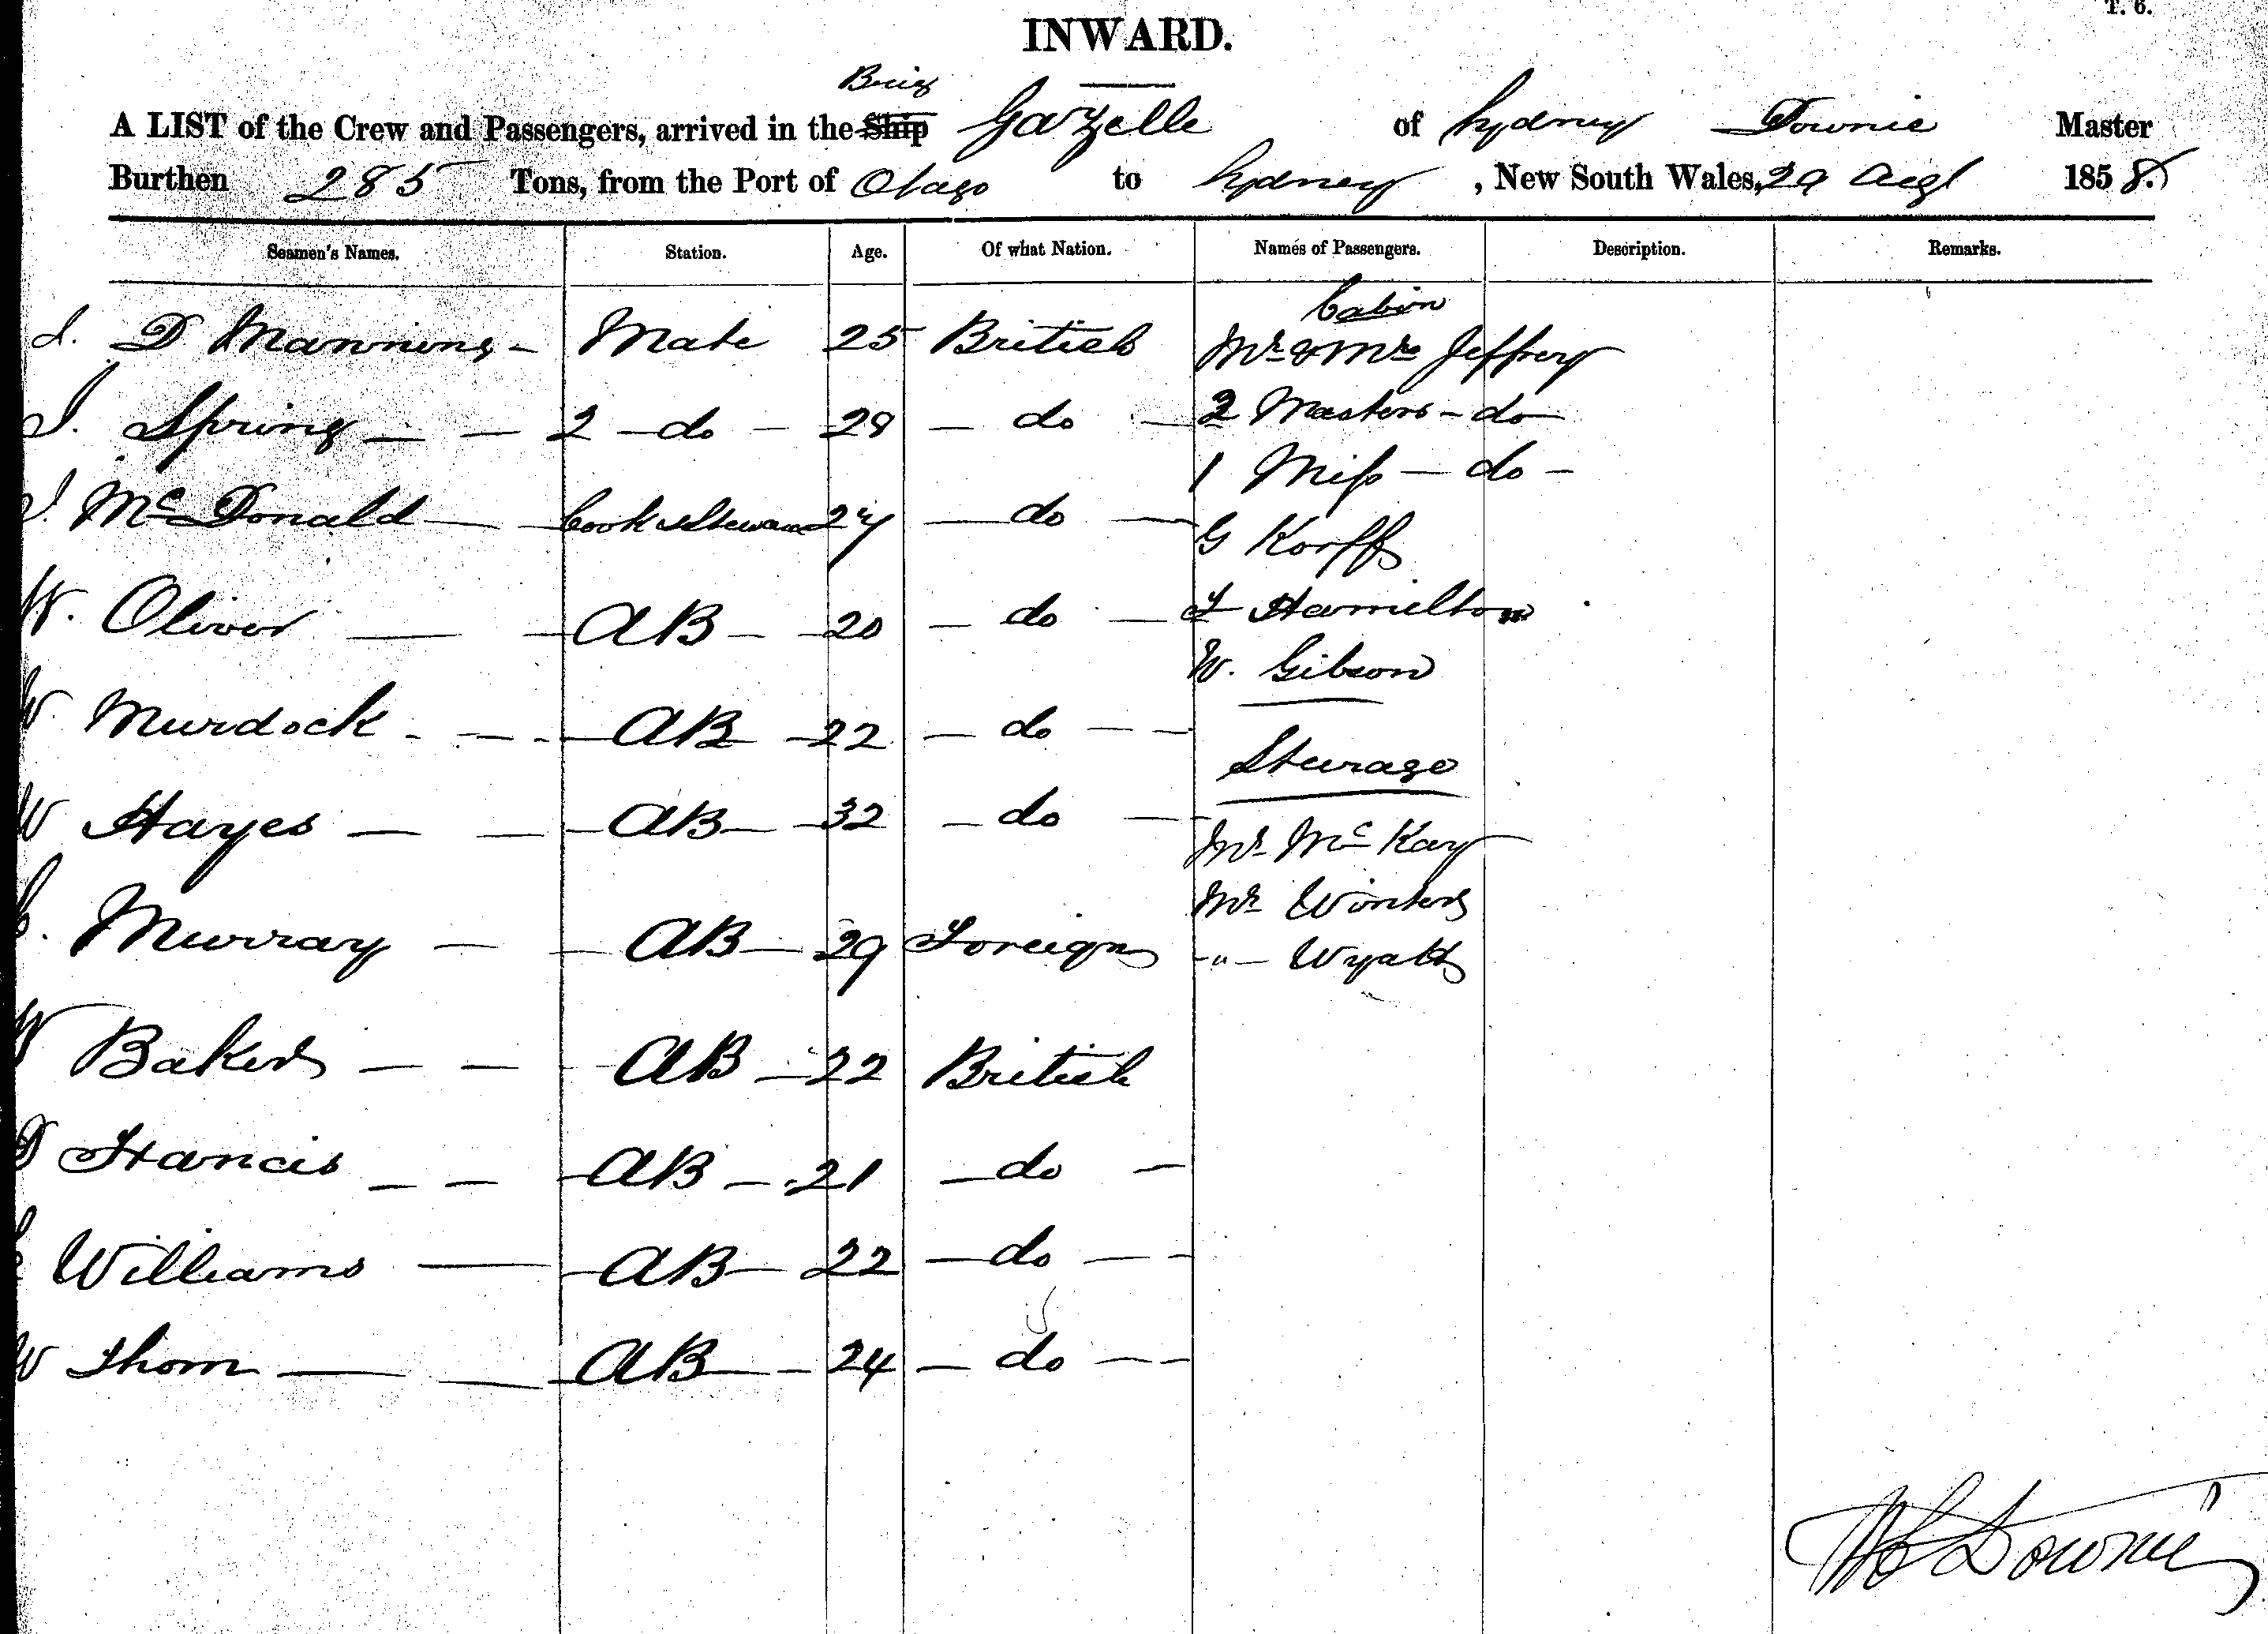 T. 6.
INWARD.
Brig
A LIST of the Crew and Passengers, arrived in the Ship Gazelle of Sydney Downie Master
Burthen 285 Tons, from the Port of Otago to Sydney, New South Wales, 29 Augt 1858.
Seamen's Names. Station. Age. Of what Nation. Names of Passengers. Description. Remarks.
Cabin
D Manning - Mate 25 British Mr & Mrs Jeffrey
J. Spring — — 2 - do - 28 - do - 2 Masters - do -
1 Miss - do -
J. McDonald — Cook & Steward 24 - do - G Korff
W. Oliver — AB - 20 - do - F Hamilton
W. Gibson
W. Murdock - - - AB - 22 - do - -
Steerage
W Hayes — — AB - 32 - do - -
Mr McKay
C. Murray — — AB - 29 Foreign Mr Winters
" Wyatt
W Baker — — AB - 22 British
Francis — — AB - 21 - do -
Williams — AB - 22 - do - -
W Thom — — AB - 24 - do - -
Downie